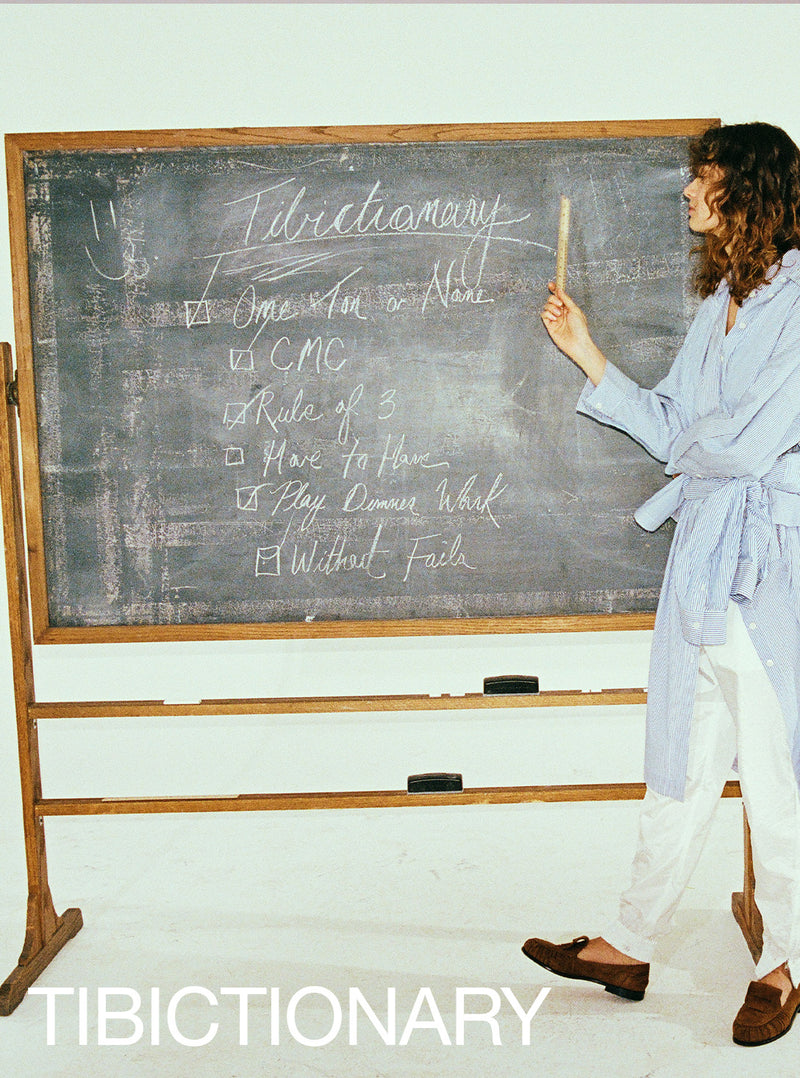 Tibictionary
One Ton or None
CMC
Rule of 3
Have to Have
Play Dinner Work
Without Fails
TIBICTIONARY